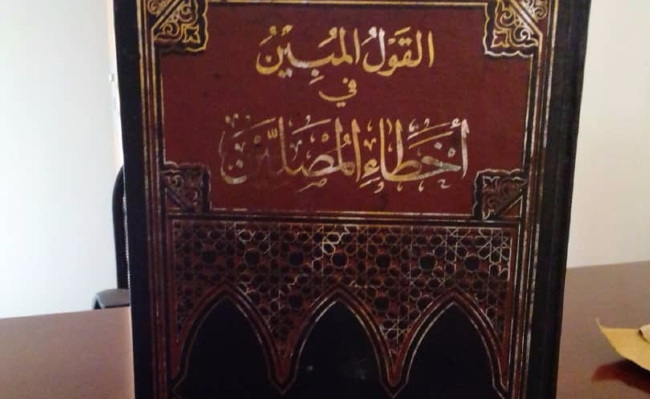 القَوْلُ المُبِيْنُ
في
أَخْطَاءِ المُصَلِّيْنَ